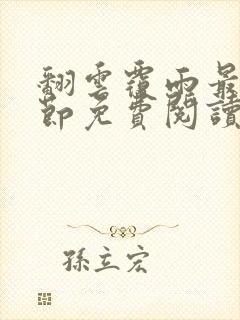 翻雲覆雨最
節免費閱讀
孫立宏